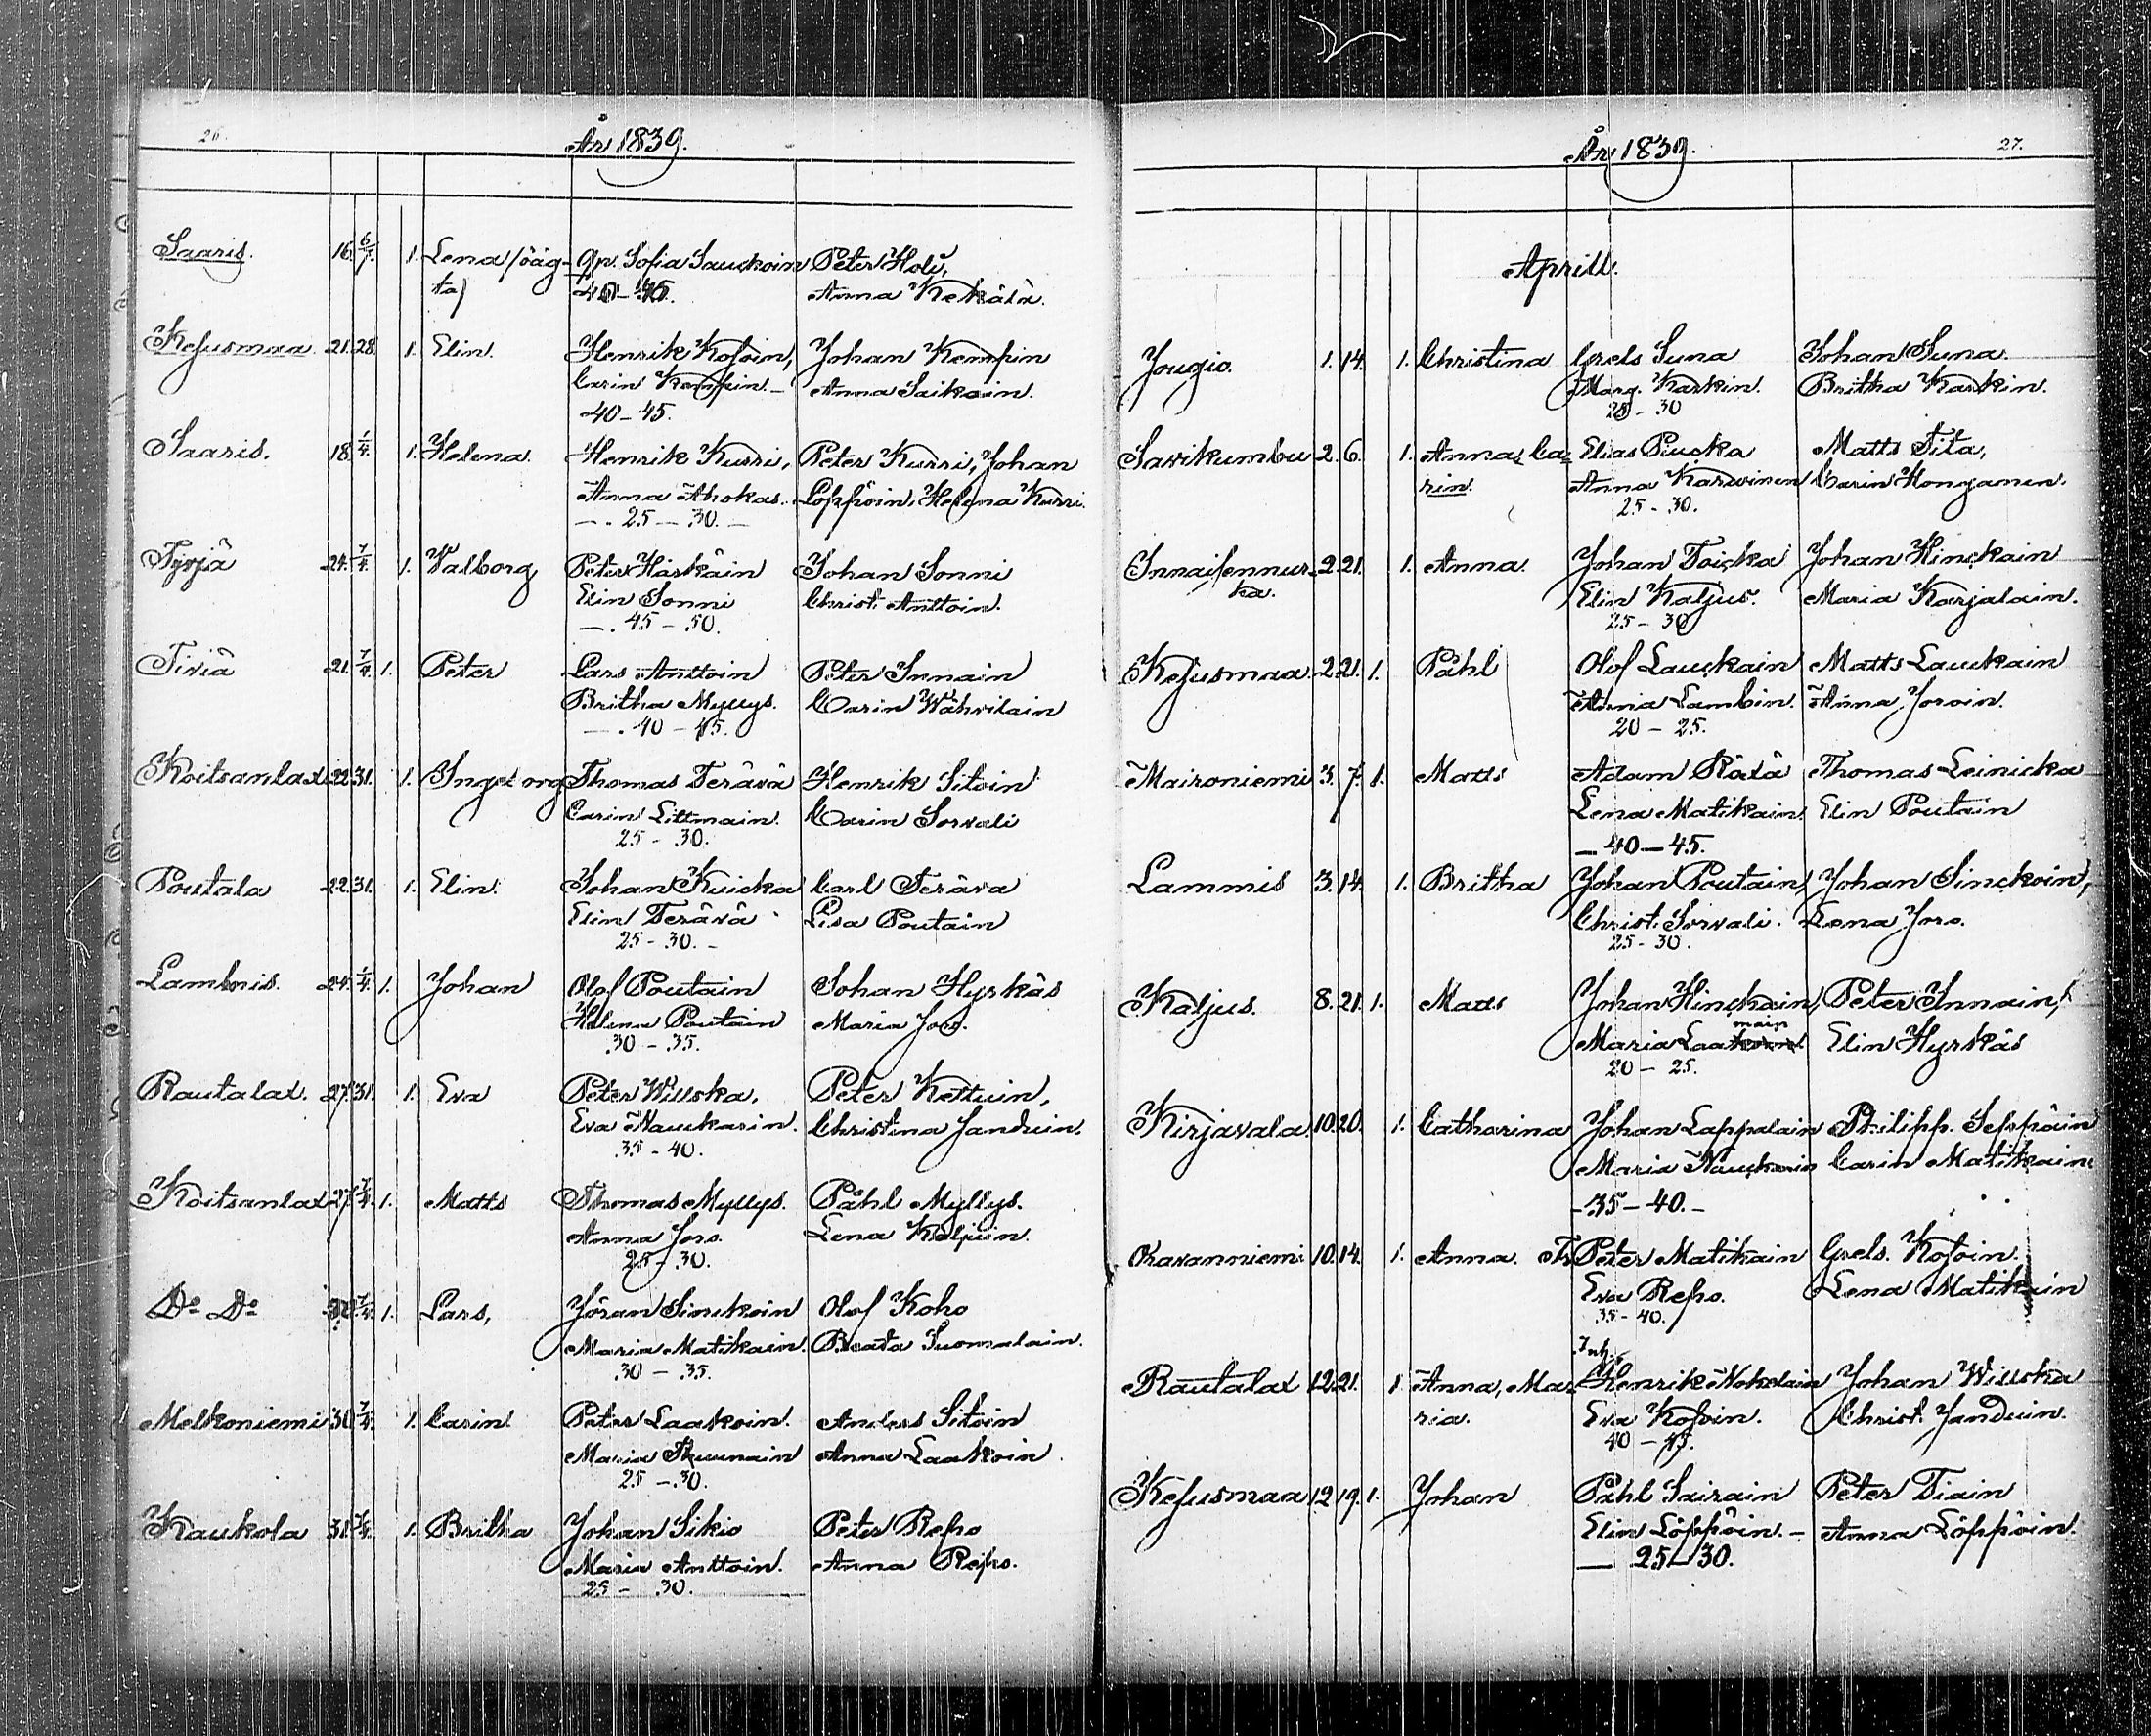 26.
År 1839.
Saaris. 16. 6/7. 1. Lena (oäg- Qp. Sofia Sauckoin Peter Holi,
ta) 40-45. Anna Kekälä.
Kesusmaa. 21. 28. 1. Elin. Henrik Kosoin, Johan Kempin
Carin Kempin.- Anna Saikoin.
40-45.
Saaris. 18. 1/4. 1. Helena. Henrik Kurri, Peter Kurri, Johan
Anna Ahokas. Löppöin, Helena Kurri.
25-30.
Tyrjä 24. 7/4. 1. Valborg Peter Härkäin Johan Sonni
Elin Sonni Christ. Anttoin.
45-50.
Tiviä 21. 7/4. 1. Peter Lars Anttoin Peter Innain
Britha Myllys. Carin Wähvilain
40-45.
Koitsanlax 22. 31. 1. Ingeborg Thomas Terävä Henrik Sitoin
Carin Littmain. Carin Sorvali
25-30.
Poutala 22. 31. 1. Elin. Johan Kuicka Carl Terävä
Elin Terävä Lisa Poutain
25-30.-
Lambnis. 24. 1/4. 1. Johan Olof Poutain Johan Hyrkäs
Helena Poutain Maria Joro.
30-35.
Rautalax. 27. 31. 1. Eva Peter Willska, Peter Kettuin,
Eva Nauckarin. Christina Janduin.
35-40.
Koitsanlax 27. 7/4. 1. Matts Thomas Myllys. Påhl Myllys.
Anna Joro. Lena Koljuin.
25-30.
Do Do 30. 7/4. 1. Lars, Jöran Sinckoin Olof Koho
Maria Matikain. Beata Suomalain.
30-35.
Melkoniemi 30. 7/4. 1. Carin Peter Laakoin. Anders Sitoin
Maria Anna Laakoin.
25-30.
Kaukola 31. 7/4. 1. Britha Johan Sikio Peter Repo
Maria Anttoin. Anna Repo.
25-30.
År 1839.
27.
Aprill.
Jougio. 1. 14. 1. Christina Grels Suna Johan Suna.
Marg. Karkin. Britha Karkin.
25-30
Savikumbu 2. 6. 1. Anna, Ca- Elias Piucka Matts Tita,
rin. Anna Karvinen Carin Hongamen.
25-30.
Innaisennur- 2. 21. 1. Anna. Johan Toicka Johan Hinckain
ka. Elin Kaljus. Maria Karjalain.
25-30
Kesusmaa. 2. 21. 1. Påhl Olof Lauckain Matts Lauckain
Anna Lambin. Anna Joroin.
20-25.
Maironiemi 3. 7. 1. Matts Adam Rätä Thomas Leinicka
Lena Matikain. Elin Poutain
-40-45.
Lammis 3. 14. 1. Britha Johan Poutain, Johan Sinckoin,
Christ. Sorvali. Lena Joro.
25-30.
Kaljus. 8. 21. 1. Matts Johan Hinckain, Peter Innain,
main
Maria Laakoin Elin Hyrkäs
20-25.
Kirjavala. 10. 20. 1. Catharina Johan Lappalain Philipp. Seppäin
Maria Nauckarin Carin Matikain
-35-40.-
Ravanniemi 10. 14. 1. Anna. Peter Matikain Grels. Kosoin.
Eva Repo. Lena Matikain
35-40.
Inh.
Rautalax 12. 21. 1. Anna, Ma- Henrik Nokelain Johan Willska
ria. Eva Kosoin. Christ. Janduin.
40-45.
Kesusmaa 12. 19. 1. Johan Påhl Sairain Peter Tiain
Elin Löppöin.- Anna Löppöin.
25-30.